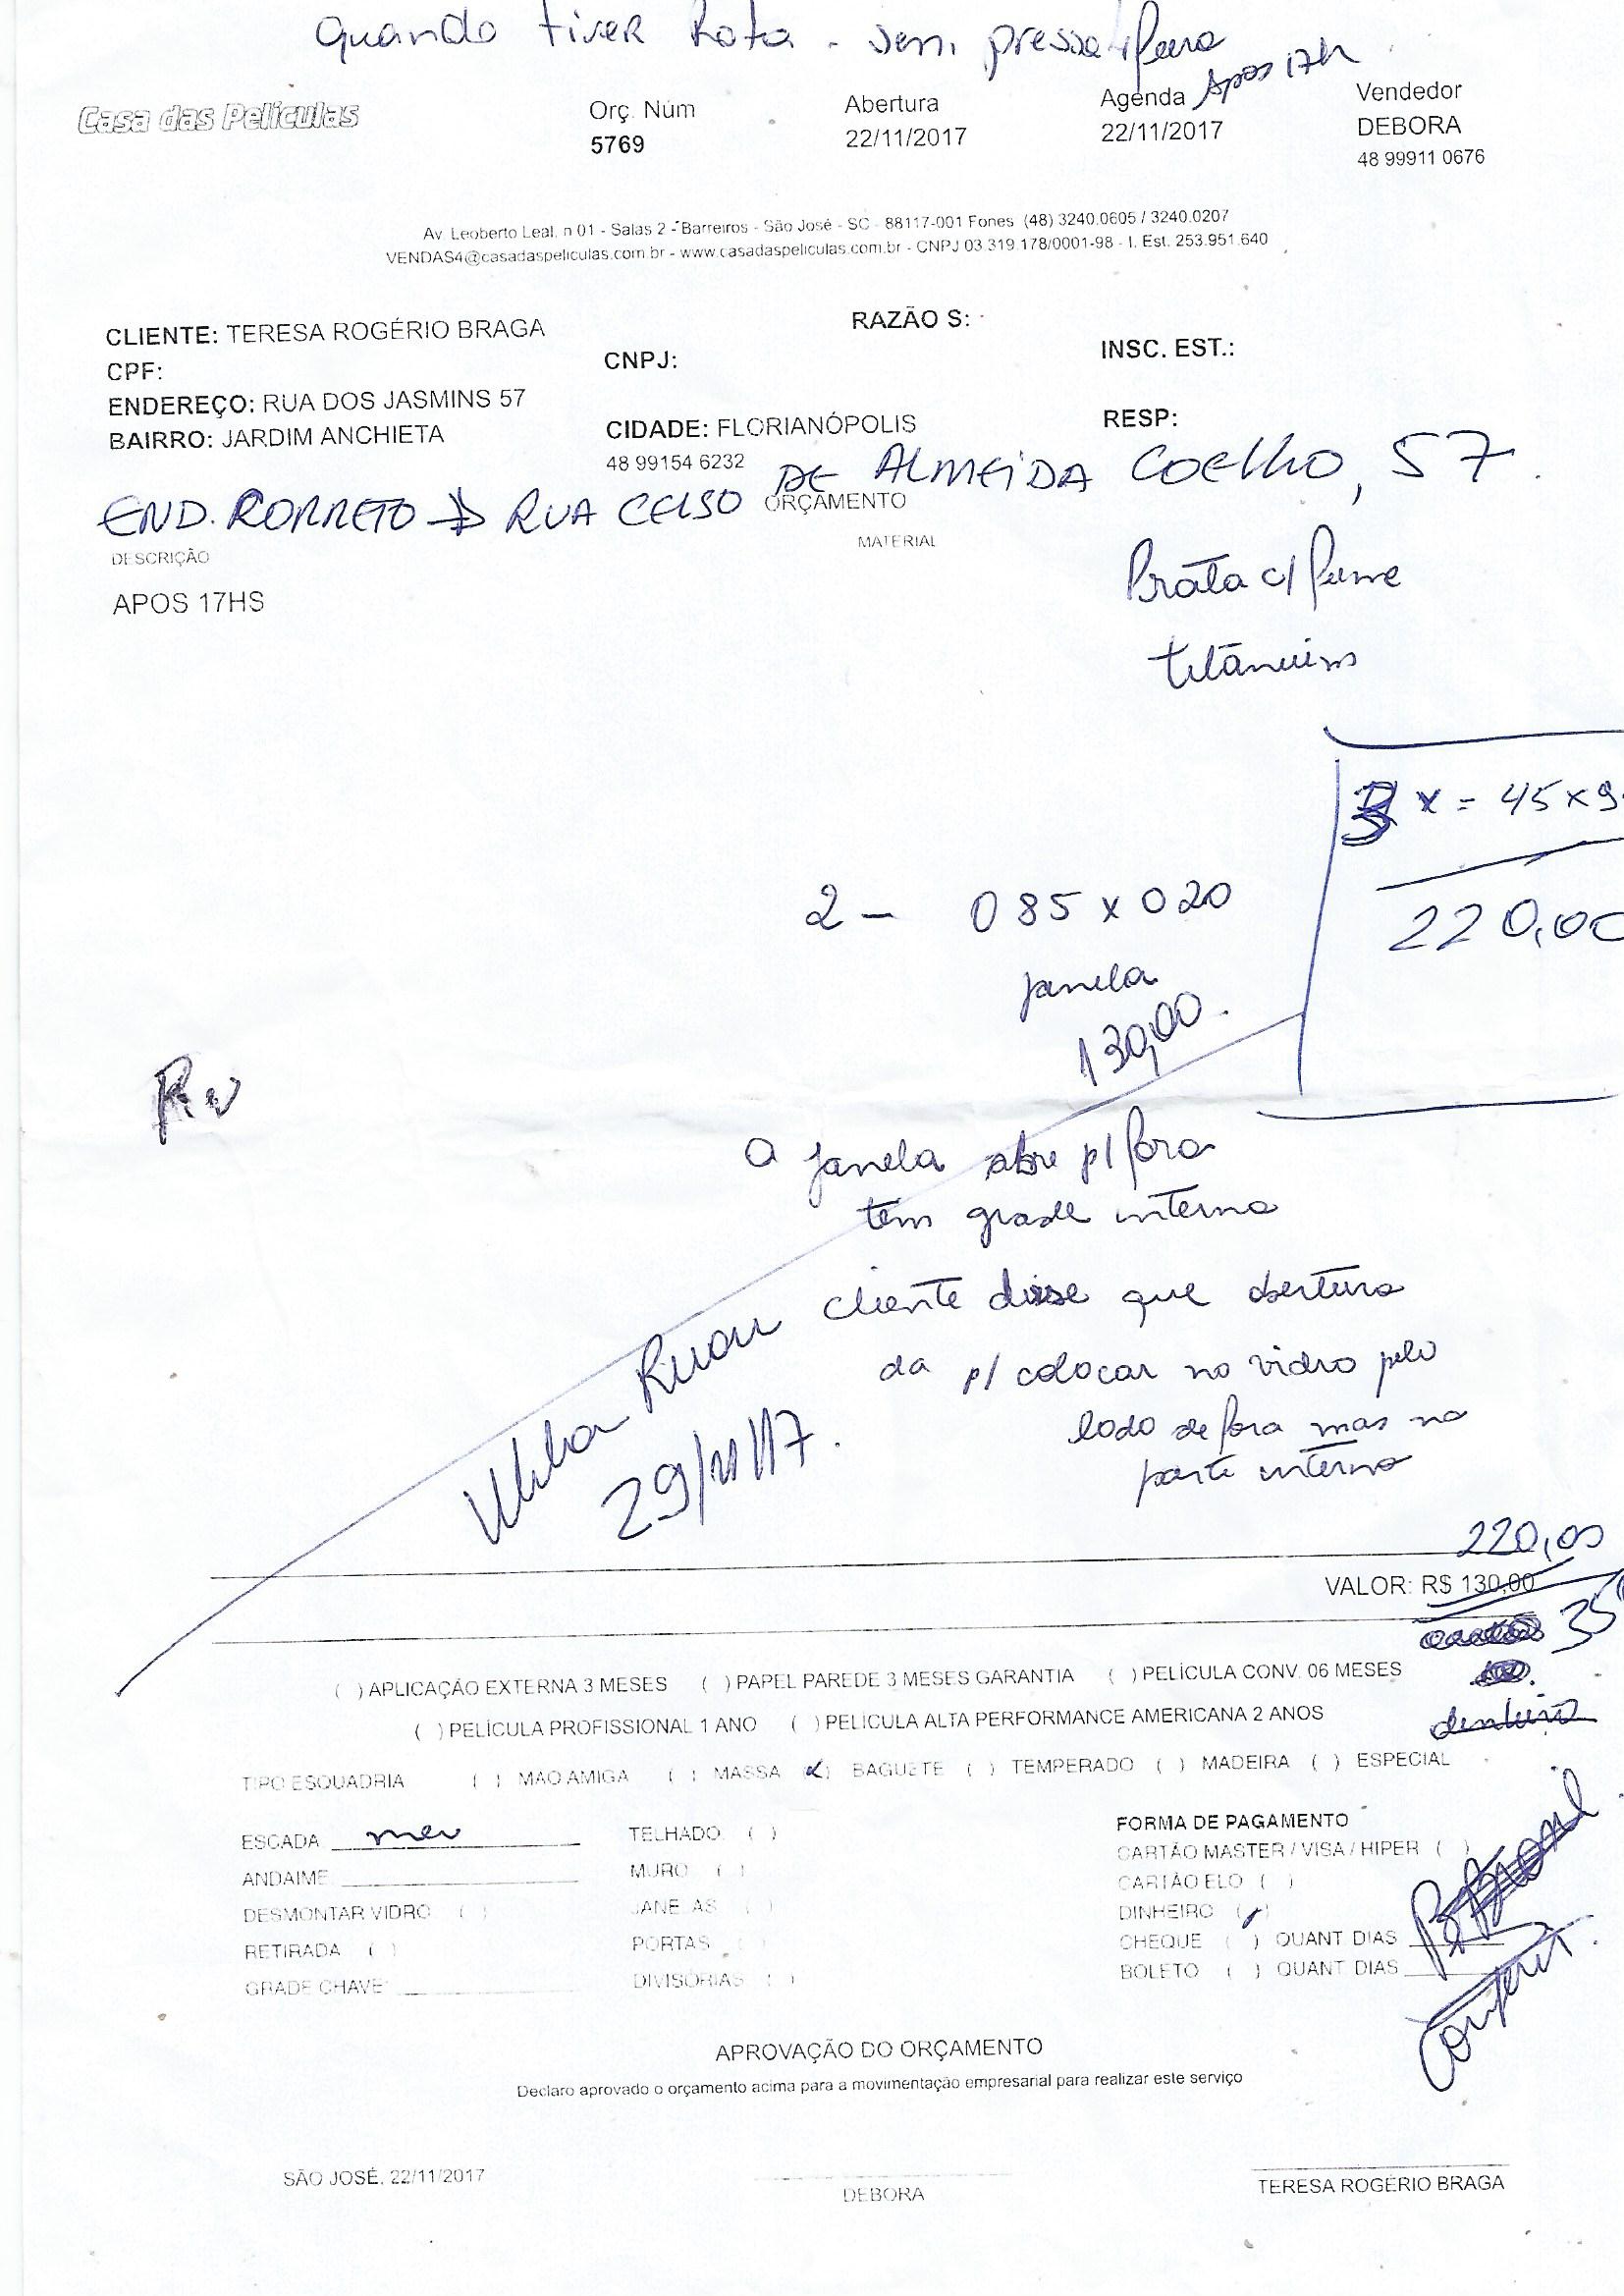 Quando tiver Rota - sem pressa
Após 17h
Casa das Películas
Orç. Núm
5769
Abertura
22/11/2017
Agenda
22/11/2017
Vendedor
DEBORA
48 99911 0676
Av. Leoberto Leal, n 01 - Salas 2 - Barreiros - São José - SC - 88117-001 Fones (48) 3240.0605 / 3240.0207
VENDAS4@casadaspeliculas.com.br - www.casadaspeliculas.com.br - CNPJ 03.319.178/0001-98 - I. Est. 253.951.640
CLIENTE: TERESA ROGÉRIO BRAGA
RAZÃO S:
CPF:
CNPJ:
INSC. EST.:
ENDEREÇO: RUA DOS JASMINS 57
BAIRRO: JARDIM ANCHIETA
CIDADE: FLORIANÓPOLIS
RESP:
48 99154 6232
END. CORRETO → RUA CELSO DE ALMEIDA COELHO, 57.
ORÇAMENTO
DESCRIÇÃO
MATERIAL
APOS 17HS
Prata c/ fume
titânium
x = 45 x 9
220,00
2 - 085 x 020
janela
130,00.
a janela abre p/ fora
tem grade interna
cliente disse que abertura
da p/ colocar no vidro pelo
lado de fora mas na
parte interna
29/11/17.
220,00
VALOR: R$ 130,00
35
( ) APLICAÇÃO EXTERNA 3 MESES ( ) PAPEL PAREDE 3 MESES GARANTIA ( ) PELÍCULA CONV. 06 MESES
( ) PELÍCULA PROFISSIONAL 1 ANO ( ) PELÍCULA ALTA PERFORMANCE AMERICANA 2 ANOS
dinheiro
TIPO ESQUADRIA ( ) MAO AMIGA ( ) MASSA (x) BAGUETE ( ) TEMPERADO ( ) MADEIRA ( ) ESPECIAL
ESCADA
TELHADO ( )
FORMA DE PAGAMENTO
ANDAIME
MURO ( )
CARTÃO MASTER / VISA / HIPER ( )
DESMONTAR VIDRO ( )
JANELAS ( )
CARTÃO ELO ( )
RETIRADA ( )
PORTAS ( )
DINHEIRO (/)
GRADE CHAVE
DIVISÓRIAS ( )
CHEQUE ( ) QUANT DIAS
BOLETO ( ) QUANT DIAS
APROVAÇÃO DO ORÇAMENTO
Declaro aprovado o orçamento acima para a movimentação empresarial para realizar este serviço
SÃO JOSÉ, 22/11/2017
DEBORA
TERESA ROGÉRIO BRAGA